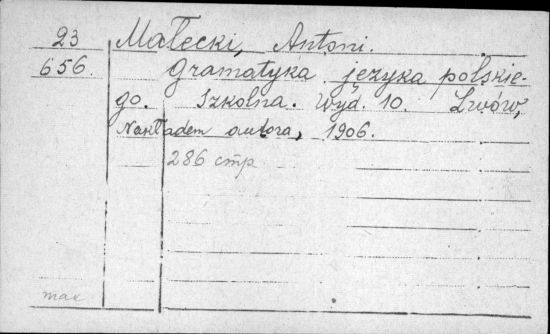 23
656.
Małecki, Antoni.
Gramatyka języka polskie-
go. Szkolna. Wyd. 10. Lwów,
Nakładem autora, 1906.
286 стр
max